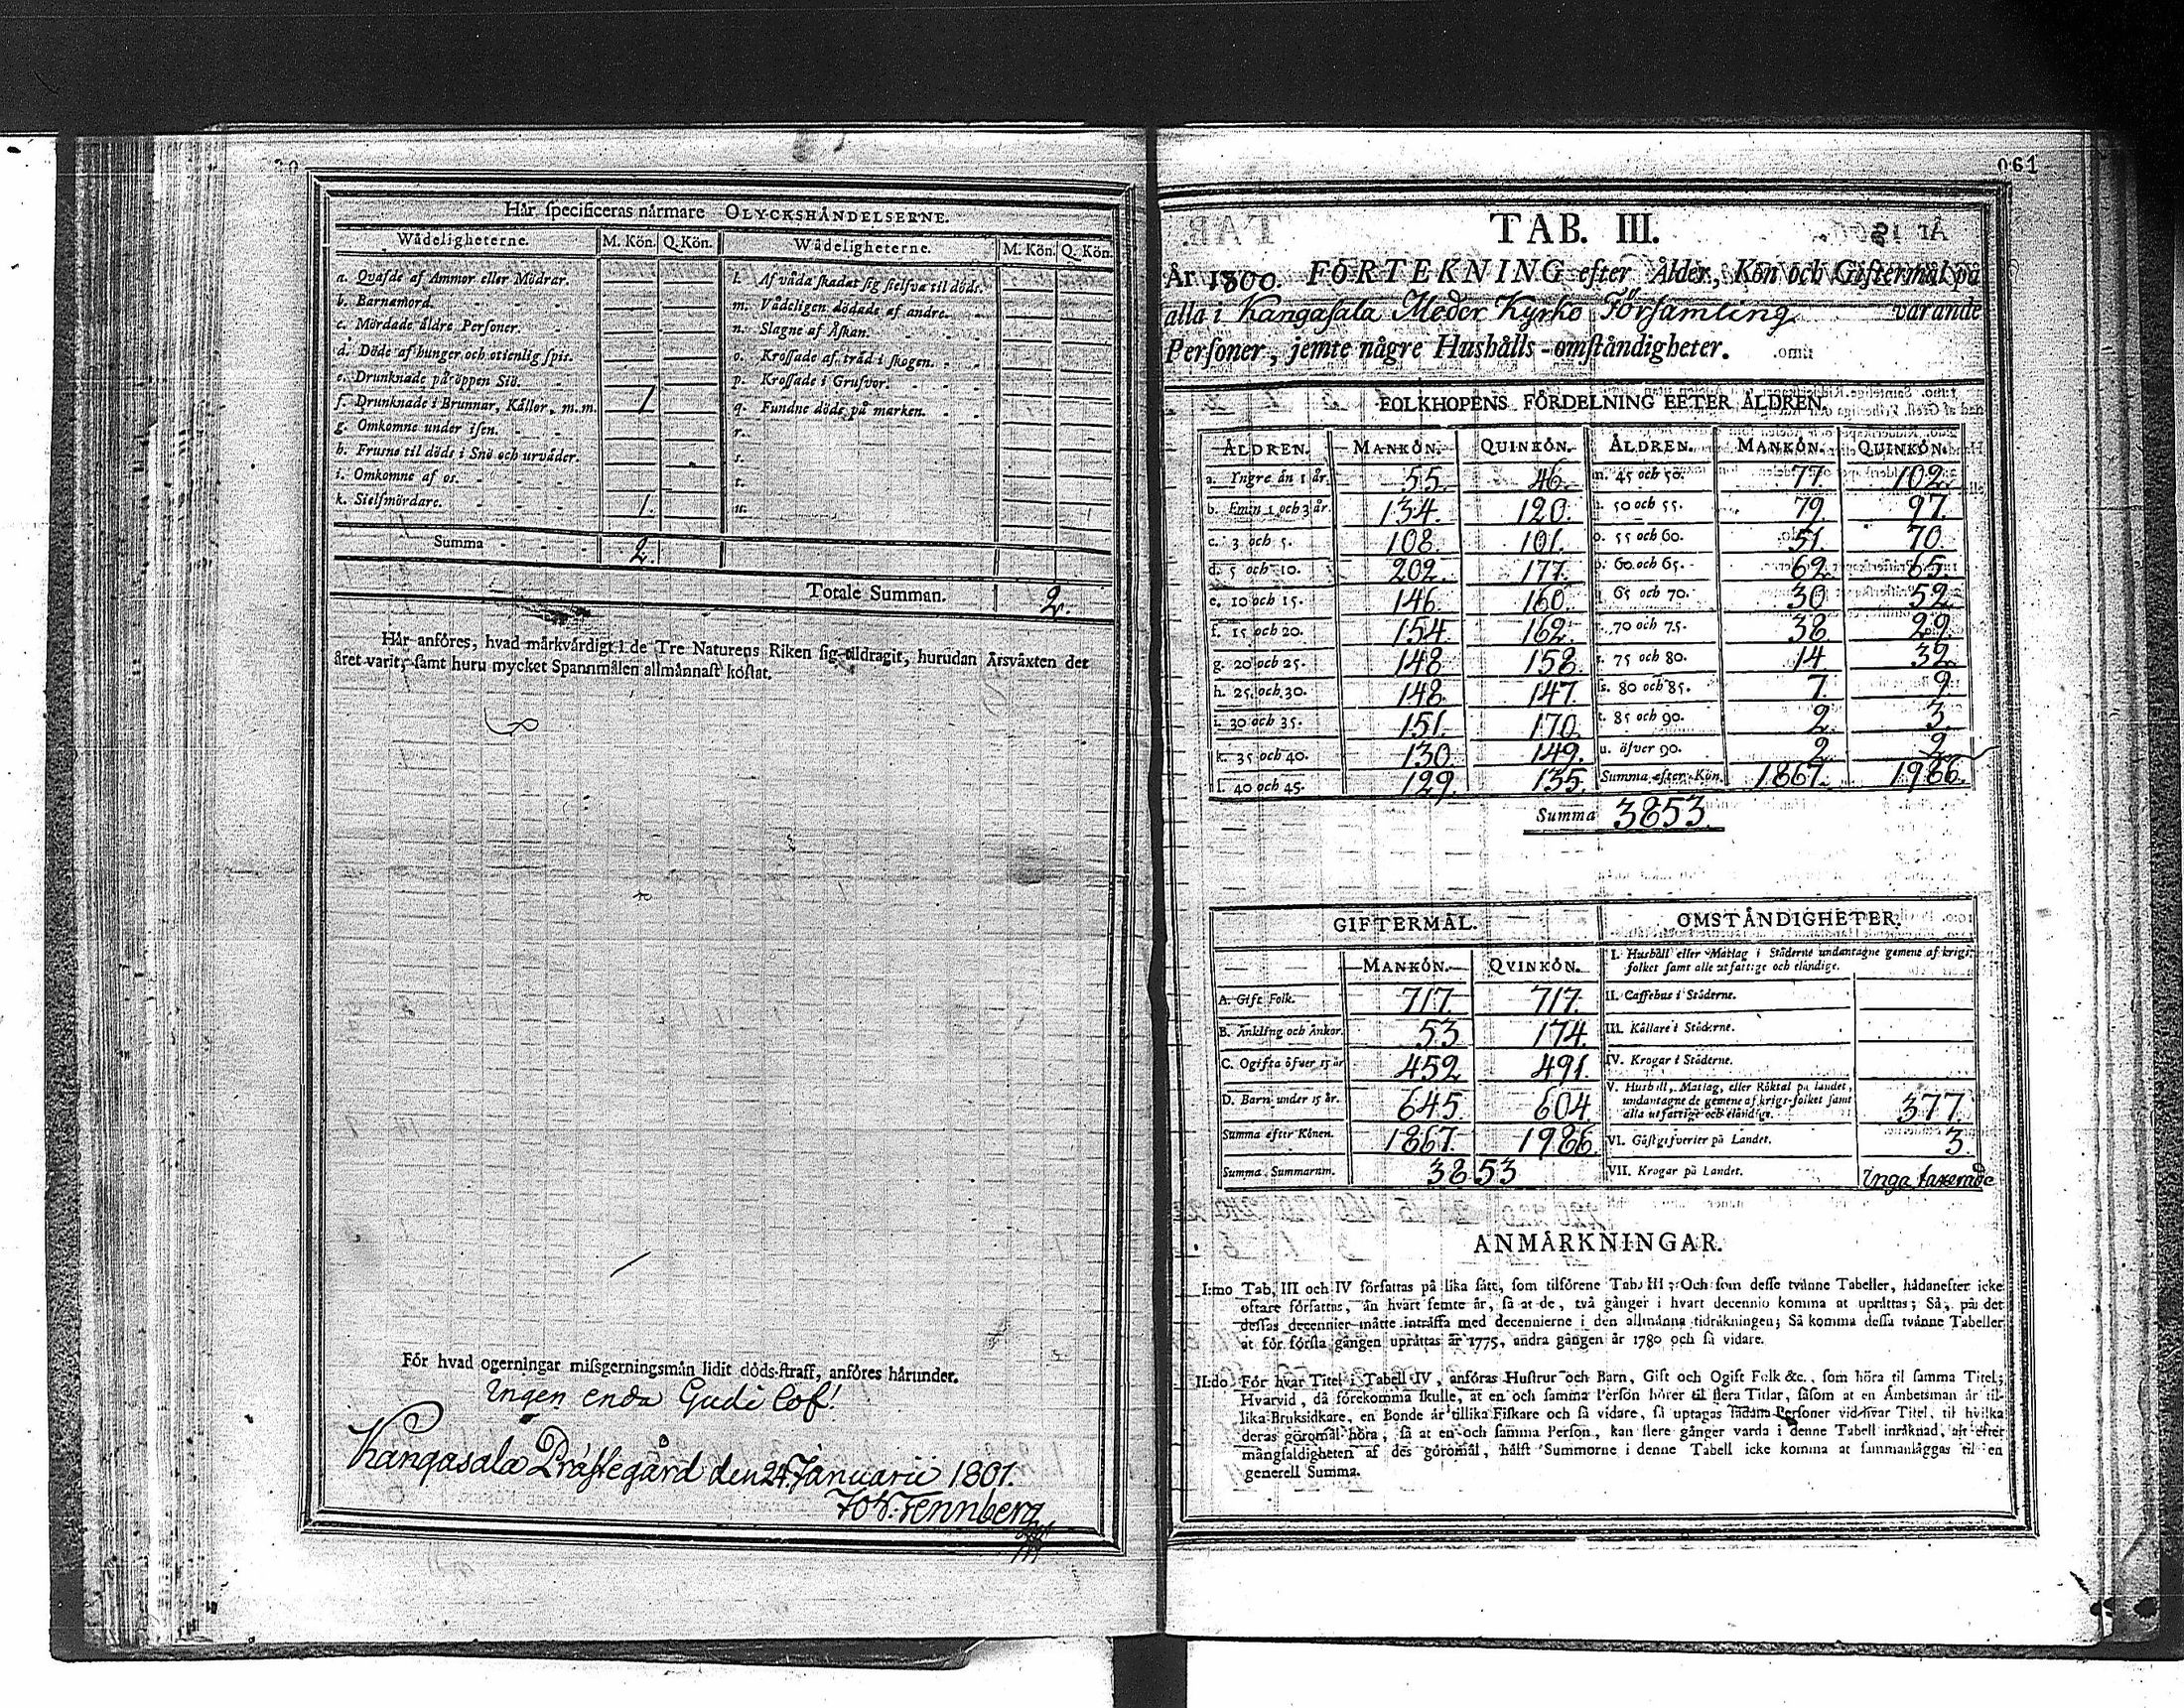 Här specificeras närmare OLYCKSHÄNDELSERNE.
Wådeligheterne. M. Kön. Q. Kön. Wådeligheterne. M. Kön. Q. Kön.
a. Qvafde af Ammor eller Mödrar. l. Af våda skadat sig sielfva til döds.
b. Barnamord. m. Vådeligen dödade af andre.
c. Mördade äldre Personer. n. Slagne af Åskan.
d. Döde af hunger och otienlig spis. o. Krossade af träd i skogen.
e. Drunknade på öppen Siö. p. Krossade i Grufvor.
f. Drunknade i Brunnar, Källor, m.m. 1 q. Fundne döds på marken.
g. Omkomne under isen. r.
h. Frusne til döds i Snö och urväder. s.
i. Omkomne af os. t.
k. Sielfmördare. 1. u.
Summa 2.
Totale Summan. 2.
Här anföres, hvad märkvärdigt i de Tre Naturens Riken sig tildragit, hurudan Årsväxten det
året varit, samt huru mycket Spannmålen allmännast kostat.
För hvad ogerningar missgerningsmän lidit döds-straff, anföres härunder.
Ingen enda Gudi lof!
Kangasala Prästegård den 24. Januarii 1801.
Joh. Fennberg
061
TAB. III.
År 1800. FÖRTEKNING efter Ålder, Kön och Giftermål på
alla i Kangasala Meder Kyrko Församling varande
Personer, jemte någre Hushålls-omständigheter.
FOLKHOPENS FÖRDELNING EFTER ÅLDREN.
ÅLDREN. MANKÖN. QUINKÖN. ÅLDREN. MANKÖN. QUINKÖN.
a. Yngre än 1 år. 55. 46. m. 45 och 50. 77 102.
b. Emin 1 och 3 år. 134. 120. n. 50 och 55. 79. 97.
c. 3 och 5. 108. 101. o. 55 och 60. 51. 70.
d. 5 och 10. 202. 177. p. 60 och 65. 62. 65.
e. 10 och 15. 146. 160. q. 65 och 70. 30 52.
f. 15 och 20. 154. 162. r. 70 och 75. 38 29.
g. 20 och 25. 148. 158. s. 75 och 80. 14 32.
h. 25 och 30. 148. 147. ss. 80 och 85. 7. 9
i. 30 och 35. 151. 170 t. 85 och 90. 2. 3
k. 35 och 40. 130. 149. u. öfver 90. 2 2
l. 40 och 45. 129. 135. Summa efter Kön. 1867. 1986.
Summa 3853.
GIFTERMÅL. OMSTÄNDIGHETER.
MANKÖN. QVINKÖN. I. Hushåll eller Matlag i Städerne undantagne gemene af krigs-
folket samt alle utfattige och eländige.
A. Gift Folk. 717 717. II. Caffehus i Städerne.
B. Änkling och Änkor. 53 174. III. Källare i Städerne.
C. Ogifta öfver 15 år 452 491. IV. Krogar i Städerne.
D. Barn under 15 år. 645. 604 V. Hushåll, Matlag, eller Röktal på landet,
undantagne de gemene af krigs-folket samt
alla utfattige och eländige. 377
Summa efter Könen. 1867. 1986. VI. Gästgifverier på Landet. 3.
Summa Summarum. 3853 VII. Krogar på Landet. Inga taxerade
ANMÄRKNINGAR.
I:mo Tab. III och IV författas på lika sätt, som tilförene Tab. III; Och som desse tvänne Tabeller, hädanefter icke
oftare författas, än hvart femte år, så at de, två gånger i hvart decennio komma at uprättas; Så, på det
dessas decennier måtte inträffa med decennierne i den allmänna tidräkningen; Så komma dessa tvänne Tabeller
at för första gången uprättas år 1775, andra gången år 1780 och så vidare.
II:do För hvar Titel i Tabell IV, anföras Hustrur och Barn, Gift och Ogift Folk &c., som höra til samma Titel;
Hvarvid, då förekomma skulle, at en och samma Person hörer til flera Titlar, såsom at en Ämbetsman är til-
lika Bruksidkare, en Bonde är tillika Fiskare och så vidare, så uptagas sådana Personer vid hvar Titel, til hvilka
deras göromål höra, så at en och samma Person, kan flere gånger varda i denne Tabell inräknad, alt efter
mångfaldigheten af des göromål, hälst Summorne i denne Tabell icke komma at sammanläggas til en
generell Summa.